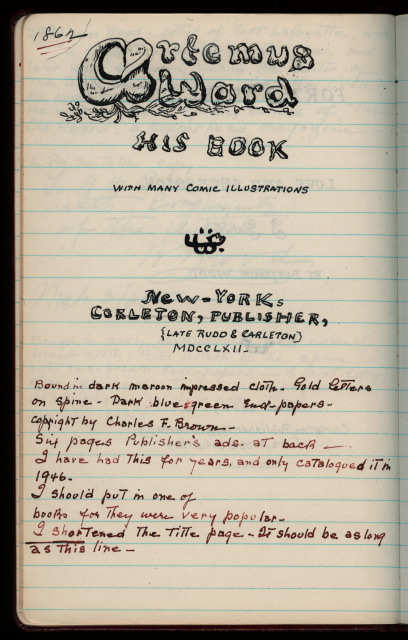 1862
Artemus
Ward
HIS BOOK
WITH MANY COMIC ILLUSTRATIONS
New-York:
CORLETON, PUBLISHER,
{LATE RUDD & CARLETON}
MDCCLXII-
Bound in dark maroon impressed cloth. Gold letters
on spine - Dark blue green End-papers-
Copyright by Charles F. Brown-
Six pages Publisher's ads. at back -
I have had this for years, and only catalogued it in
1946-
I should put in one of
books for They were very popular-
I shortened The Title page - It should be as long
as this line -